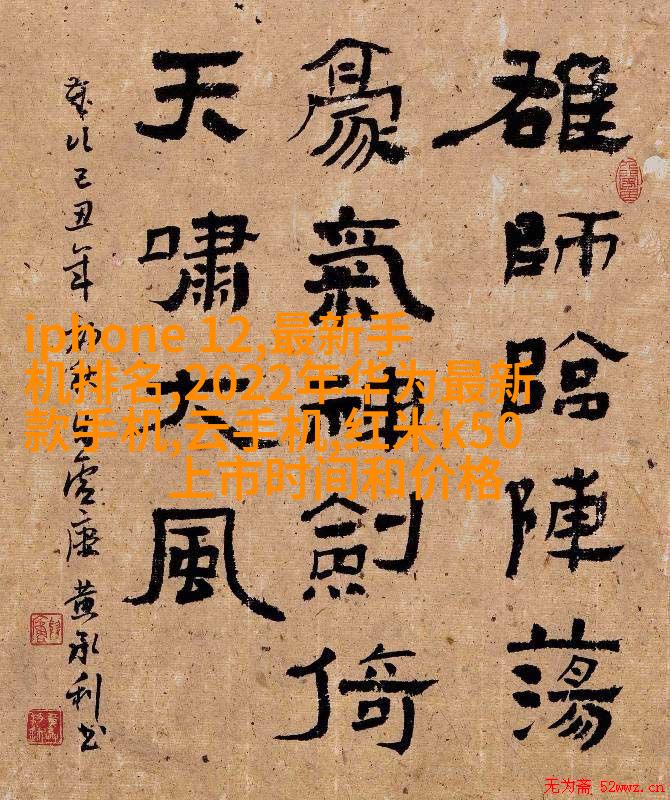 雄師臨陣蕩
豪氣劍倚
天嘯大風
歲次己丑年初秋 黄承利书
iphone 12,最新手
机排名,2022年华为最新
款手机,云手机,红米k50
上市时间和价格
无为斋 52wwz.cn